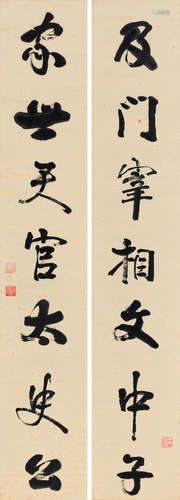 及门宰相文中子
家世天官太史公